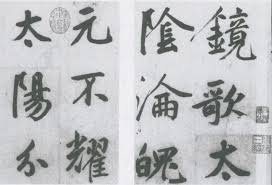 鏡歌太
陰淪魄
元不耀
太陽分